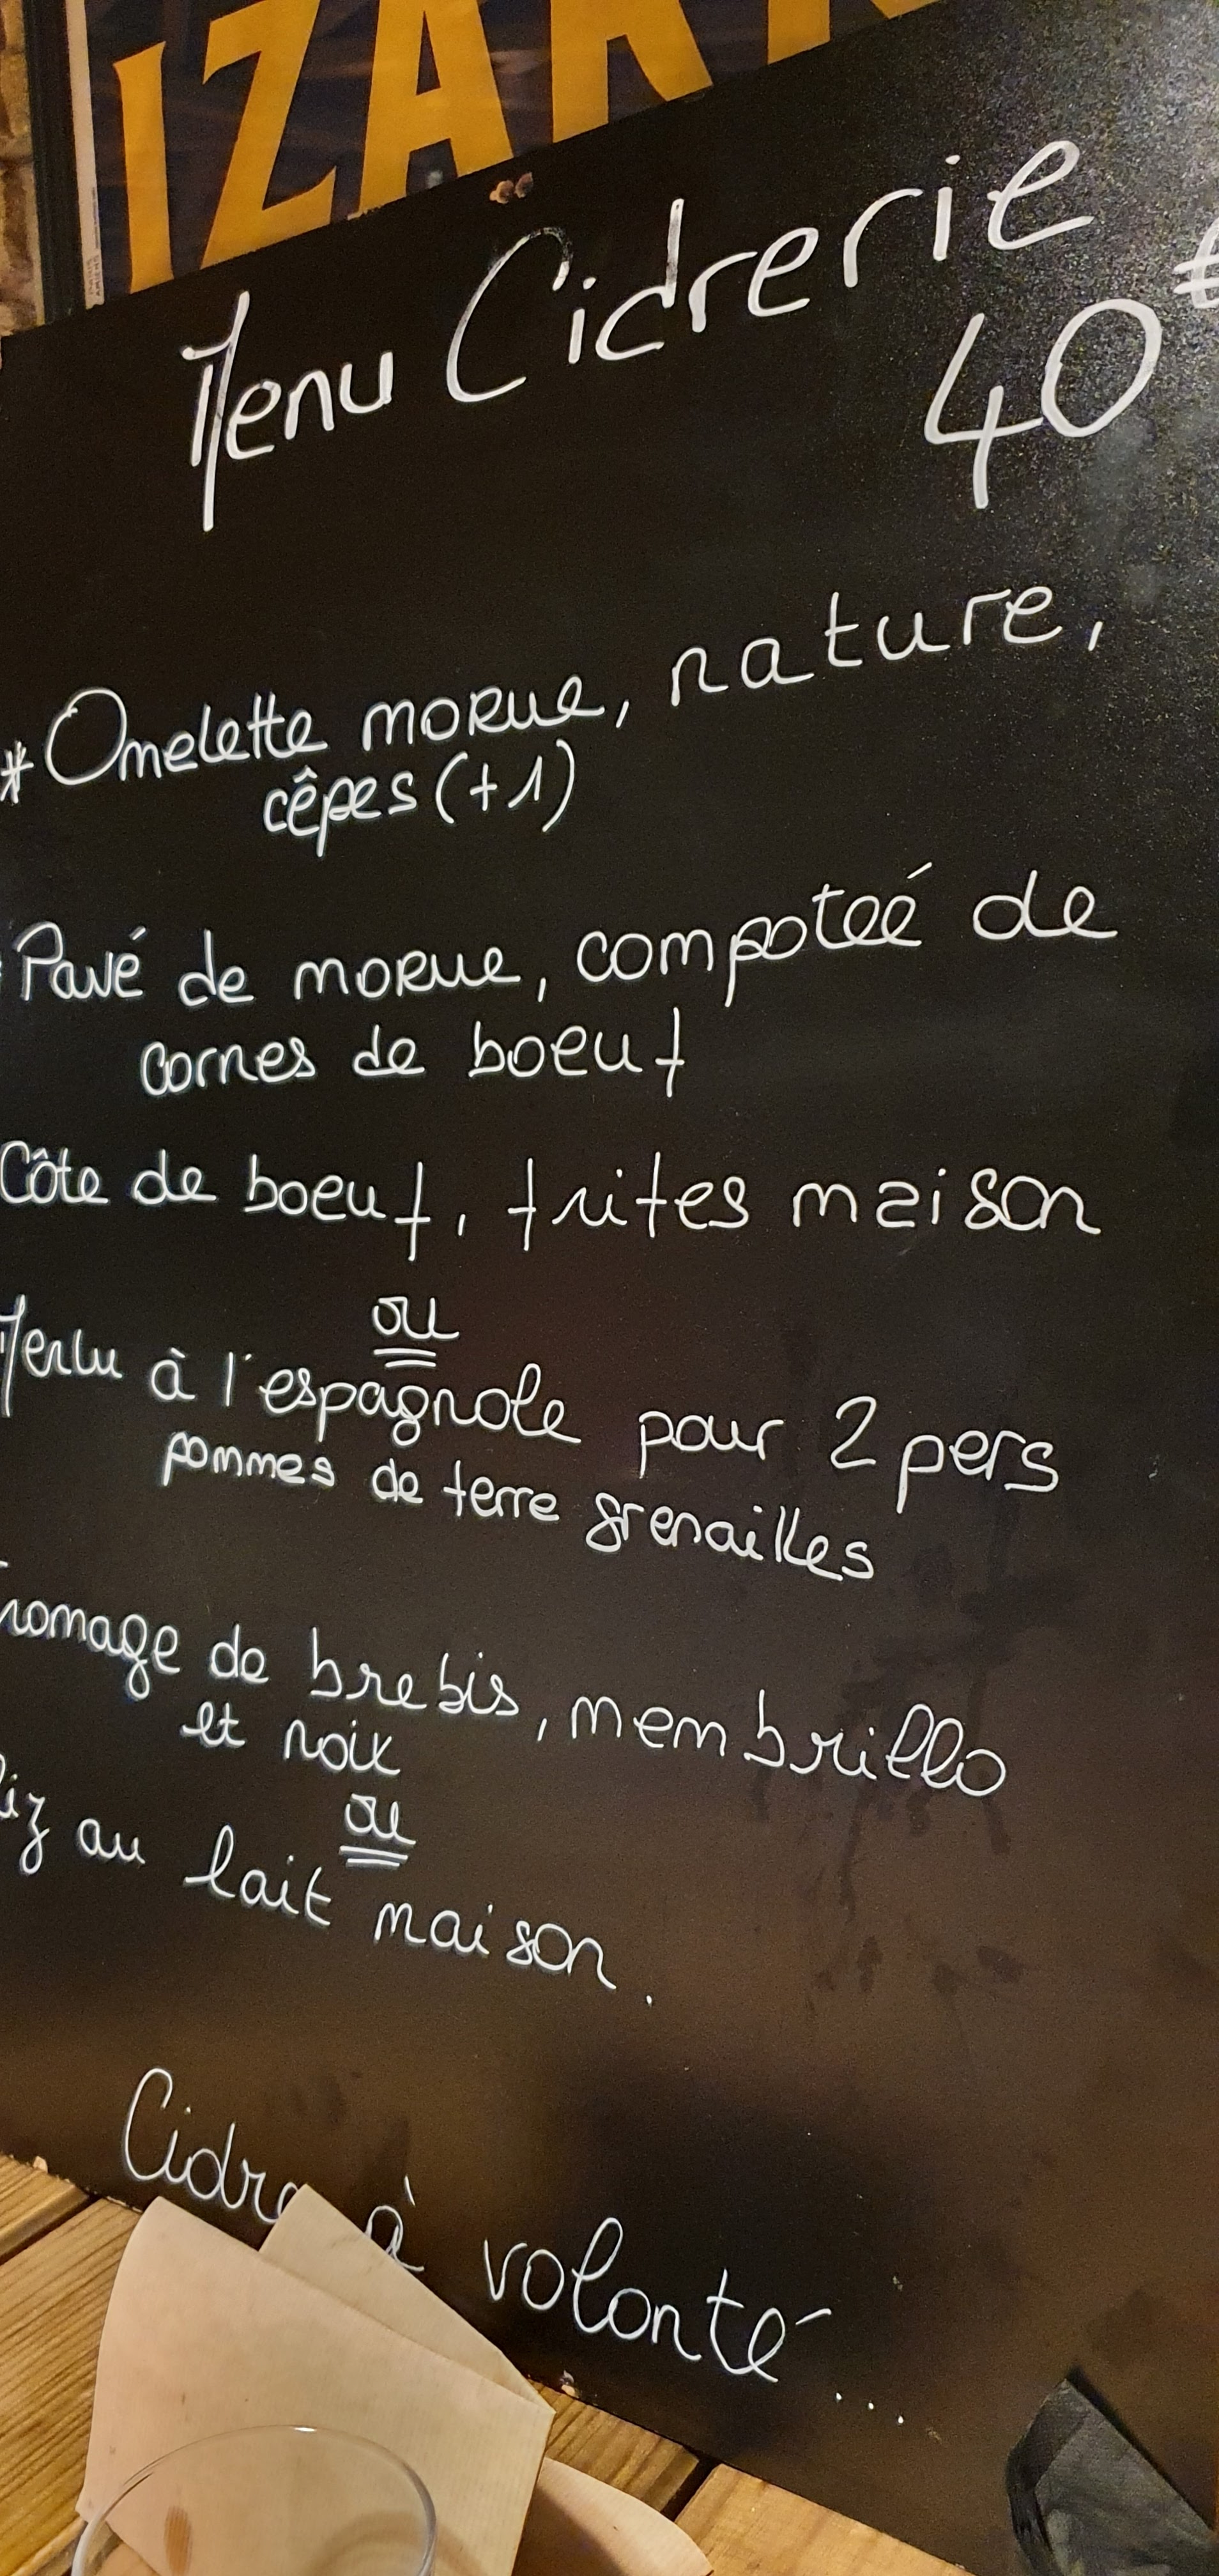 IZAR
Menu Cidrerie
40€
* Omelette morue, nature,
cêpes (+1)
Pavé de morue, compoteé de
cornes de boeuf
Côte de boeuf, frites maison
ou
Merlu à l'espagnole pour 2 pers
pommes de terre grenailles
Fromage de brebis, membrillo
et noix
ou
Riz au lait maison.
Cidre à volonté...